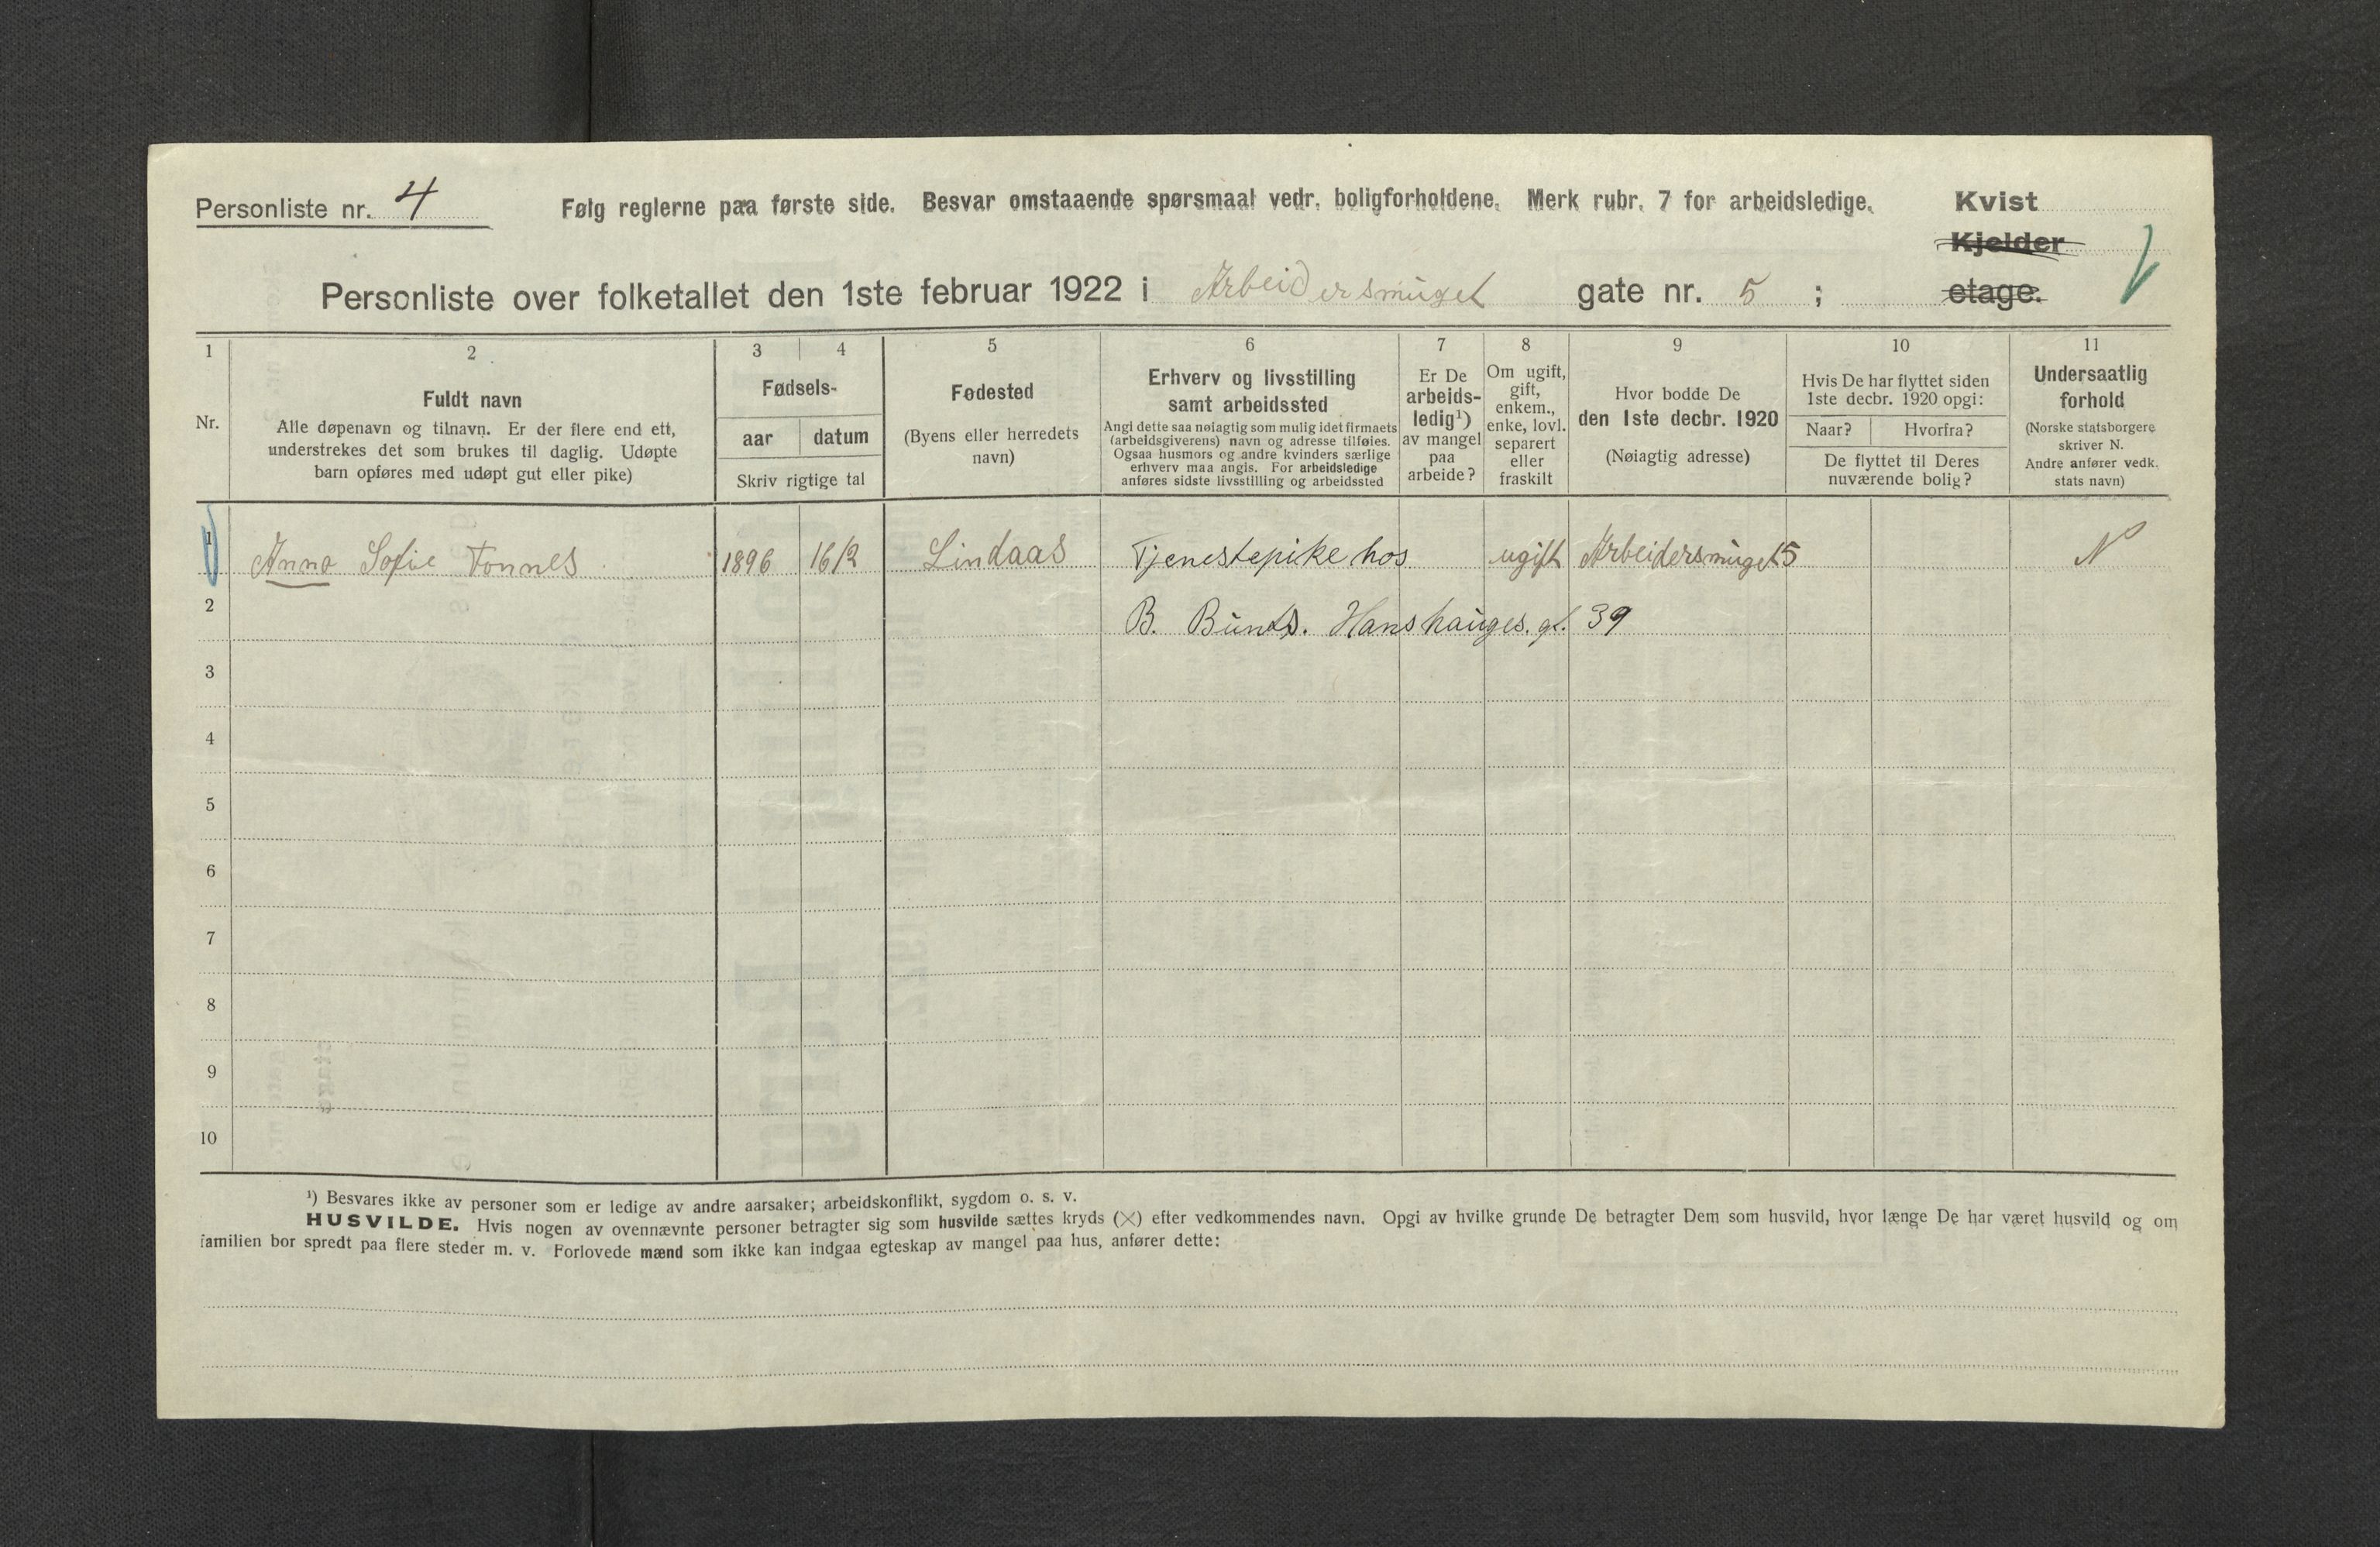 Personliste nr. 4
Følg reglerne paa første side. Besvar omstaaende spørsmaal vedr. boligforholdene. Merk rubr. 7 for arbeidsledige.
Kvist
Kjelder
Personliste over folketallet den 1ste februar 1922 i Arbeidersmuget gate nr. 5 ; etage.
1 2 3 4 5 6 7 8 9 10 11
Nr.
Fuldt navn
Alle døpenavn og tilnavn. Er der flere end ett,
understrekes det som brukes til daglig. Udøpte
barn opføres med udøpt gut eller pike)
Fødsels-
aar datum
Skriv rigtige tal
Fødested
(Byens eller herredets
navn)
Erhverv og livsstilling
samt arbeidssted
Angi dette saa nøiagtig som mulig idet firmaets
(arbeidsgiverens) navn og adresse tilføies.
Ogsaa husmors og andre kvinders særlige
erhverv maa angis. For arbeidsledige
anføres sidste livsstilling og arbeidssted
Er De
arbeids-
ledig¹)
av mangel
paa
arbeide?
Om ugift,
gift,
enkem.,
enke, lovl.
separert
eller
fraskilt
Hvor bodde De
den 1ste decbr. 1920
(Nøiagtig adresse)
Hvis De har flyttet siden
1ste decbr. 1920 opgi:
Naar? Hvorfra?
De flyttet til Deres
nuværende bolig?
Undersaatlig
forhold
(Norske statsborgere
skriver N.
Andre anfører vedk.
stats navn)
1 Anna Sofie Tonnes 1896 16/2 Lindaas Tjenestepike hos ugift Arbeidersmuget 5 N
2 B. Hanshauges. gt. 39
3
4
5
6
7
8
9
10
¹) Besvares ikke av personer som er ledige av andre aarsaker; arbeidskonflikt, sygdom o. s. v.
HUSVILDE. Hvis nogen av ovennævnte personer betragter sig som husvilde sættes kryds (×) efter vedkommendes navn. Opgi av hvilke grunde De betragter Dem som husvild, hvor længe De har været husvild og om
familien bor spredt paa flere steder m. v. Forlovede mænd som ikke kan indgaa egteskap av mangel paa hus, anfører dette: